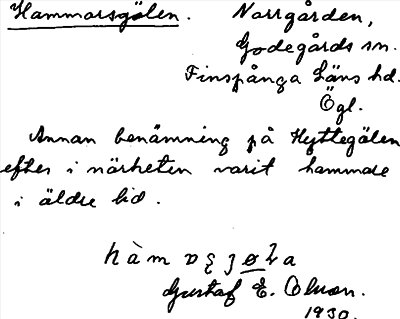 Hammarsgölen. Norrgården,
Godegårds sn.
Finspånga läns hd.
Ögl.
Annan benämning på Hyttegölen
efter i närheten varit hammare
i äldre tid.
Gustaf E. Olsson.
1930.